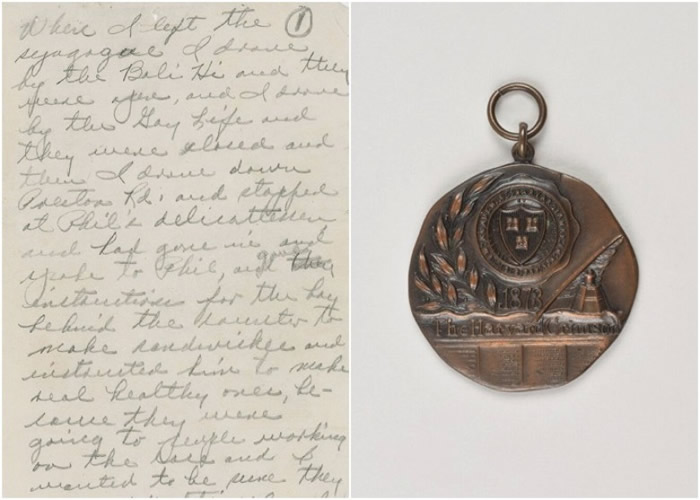 1
When I left the
synagogue I drove
by the Bali Hi and they
were open, and I drove
by the Gay Life and
they were closed and
then I drove down
Preston Rd. and stopped
at Phil's delicatessen
and had gone in and
spoke to Phil, and gave
instructions for the boy
behind the counter to
make sandwiches and
instructed him to make
real healthy ones, be-
cause they were
going to people working
on the case and I
wanted to be sure they
1873
The Harvard Crimson